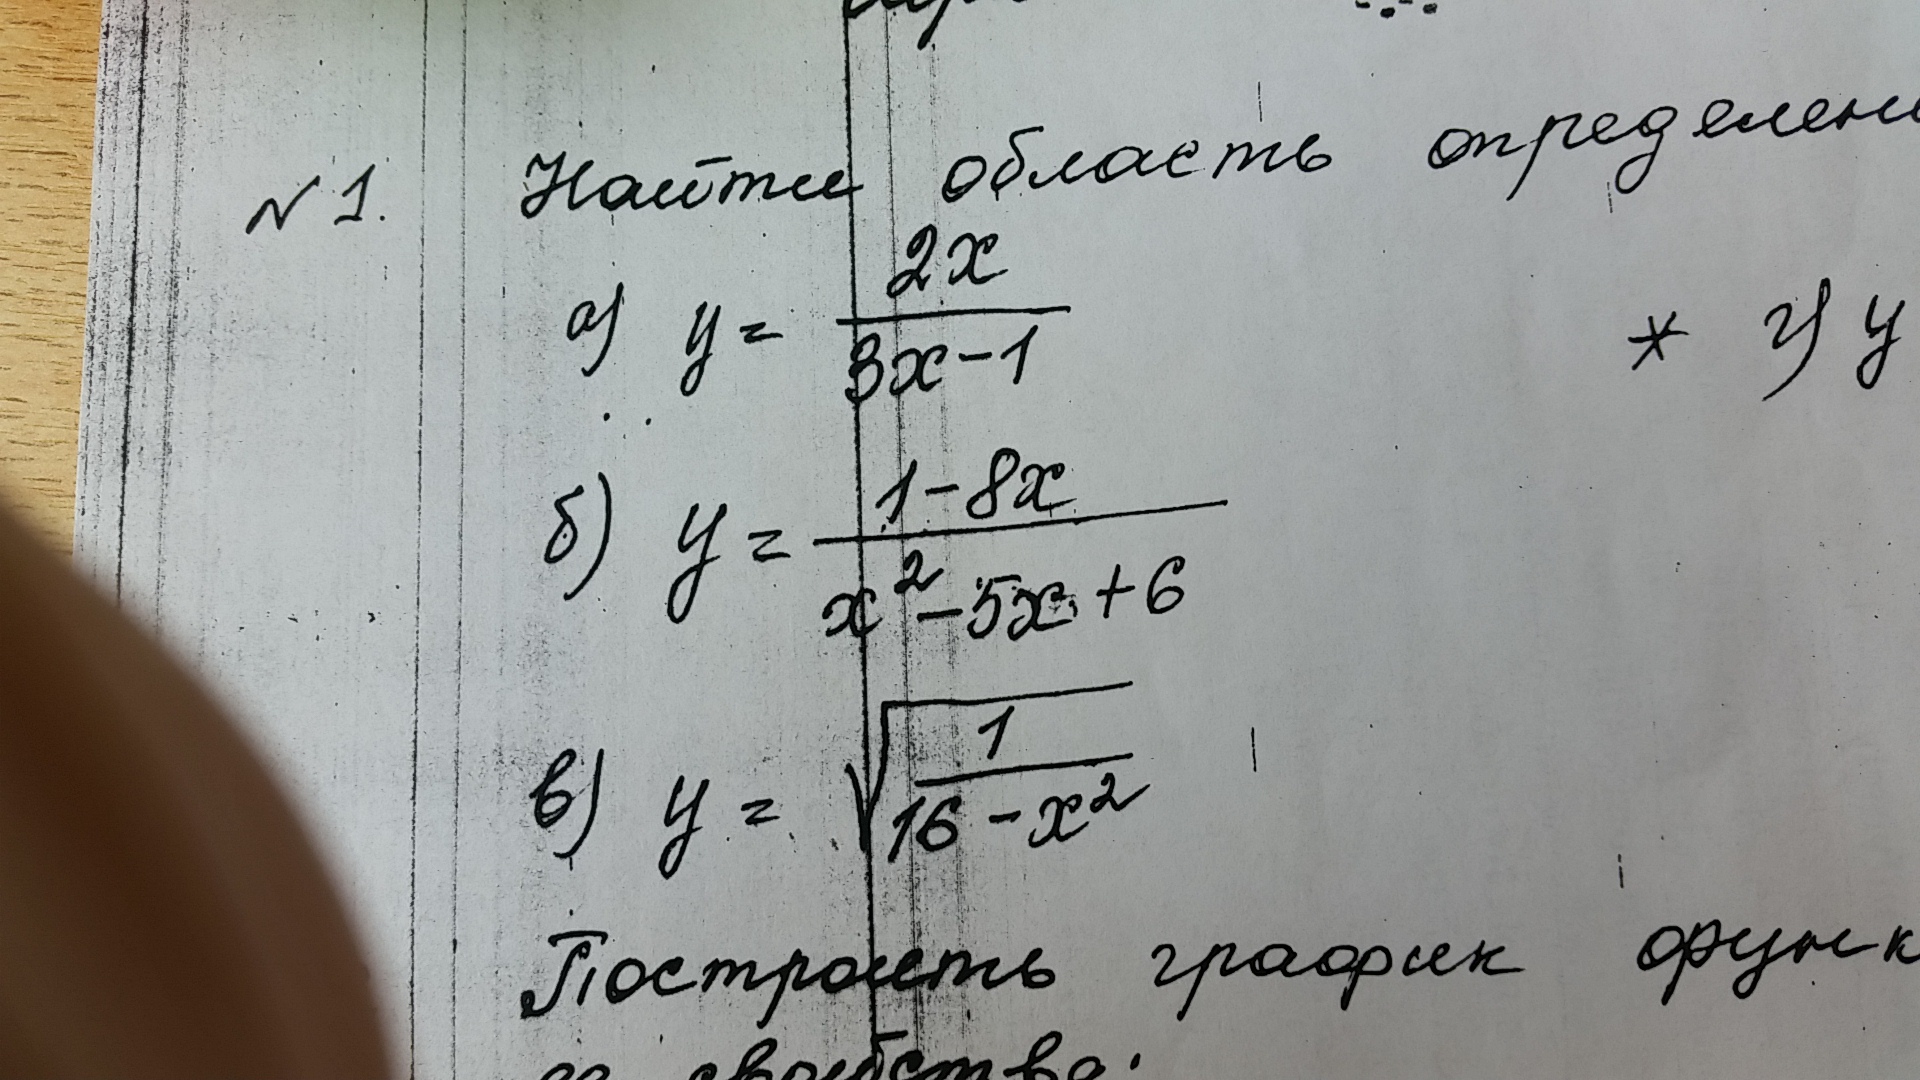 №1. Найти область определени
а) y = 2x / (3x-1)
* г) y
б) y = (1-8x) / (x²-5x+6)
в) y = √(1 / (16-x²))
Построить график функ
свойства: